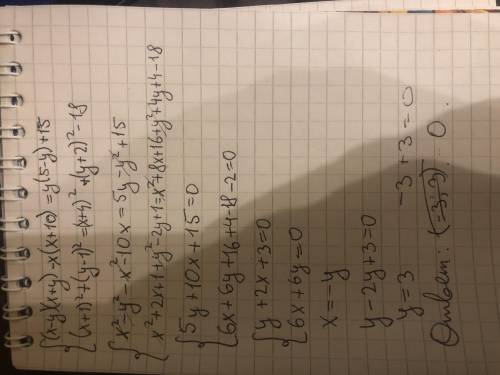 {(x-y)(x+y)-x(x+10)=y(5-y)+15
{(x+1)²+(y-1)²=(x+4)²+(y+2)²-18
{x²-y²-x²-10x=5y-y²+15
{x²+2x+1+y²-2y+1=x²+8x+16+y²+4y+4-18
{5y+10x+15=0
{6x+6y+16+4-18-2=0
{y+2x+3=0
{6x+6y=0
x=-y
y-2y+3=0
y=3 -3+3=0
Ответ: (-3;3). 0.